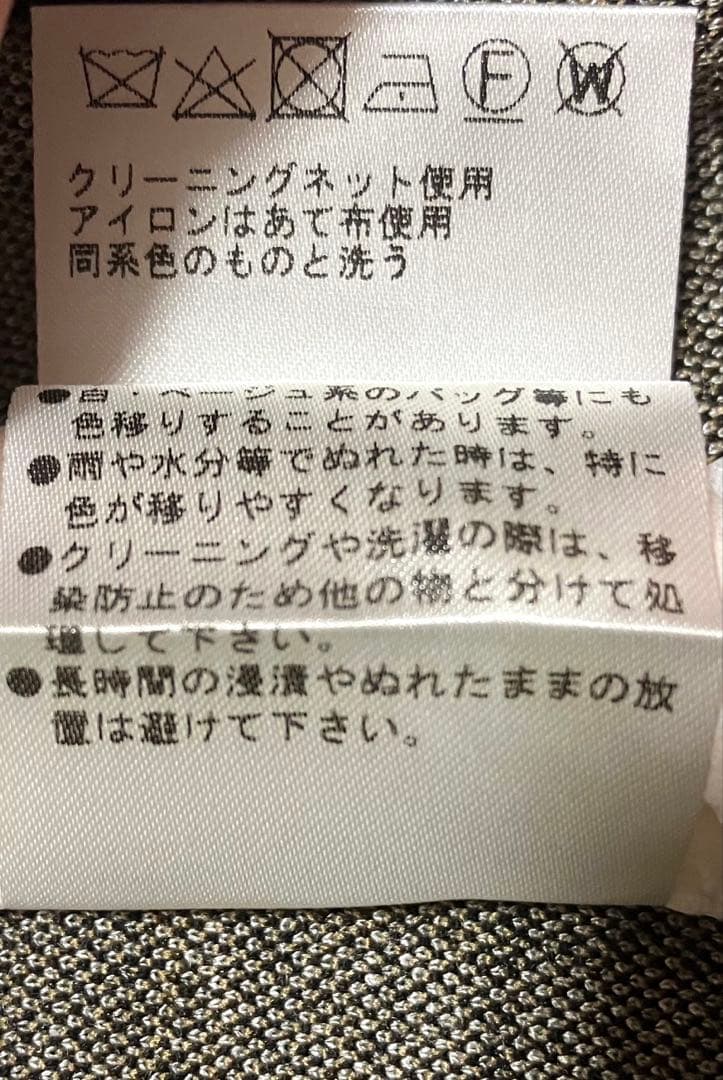 F W
クリーニングネット使用
アイロンはあて布使用
同系色のものと洗う
●白・ベージュ系のバッグ等にも
色移りすることがあります。
●雨や水分等でぬれた時は、特に
色が移りやすくなります。
●クリーニングや洗濯の際は、移
染防止のため他の物と分けて処
理して下さい。
●長時間の浸漬やぬれたままの放
置は避けて下さい。